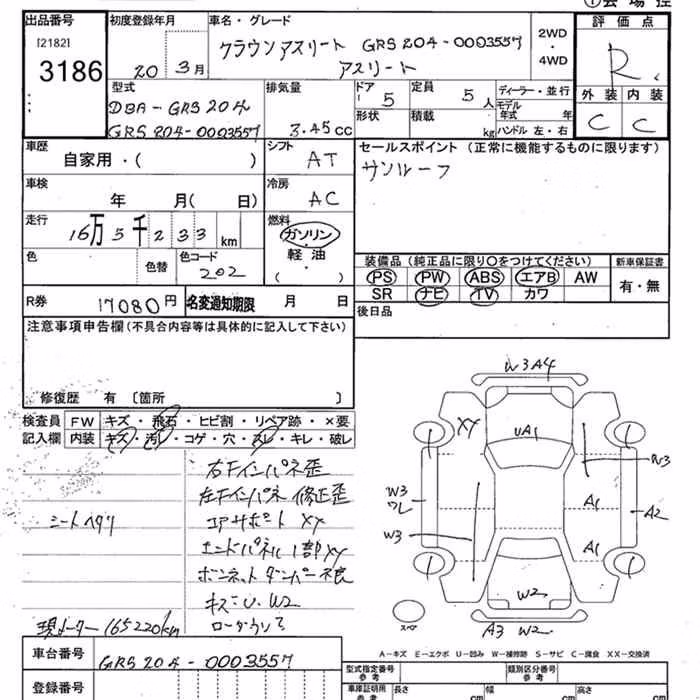 ① 会場控
出品番号
[2182]
3186
初度登録年月
20 3月
車名・グレード
クラウンアスリート GRS204-0003557
アスリート
2WD
・
4WD
評価点
R
外装 内装
C C
型式
DBA-GRS204
GRS204-0003557
排気量
3.45cc
ドアー 5
形状
定員 5 人
積載 kg
ディーラー・並行
モデル年式 年
ハンドル 左・右
車歴
自家用・( )
シフト AT
車検
年 月( 日)
冷房 AC
走行
16万5千233km
燃料
ガソリン
軽油
( )
色
色替
色コード
202
セールスポイント(正常に機能するものに限ります)
サンルーフ
装備品(純正品に限り○をつけてください)
新車保証書
PS PW ABS エアB AW
SR ナビ TV カワ
有・無
後日品
R券 17080円
名変通知期限 月 日
注意事項申告欄(不具合内容等は具体的に記入して下さい)
修復歴 有 〔箇所 〕
検査員記入欄
FW キズ・飛石・ヒビ割・リペア跡・×要
内装 キズ・汚レ・コゲ・穴・スレ・キレ・破レ
右Fインパネ歪
左Fインパネ 修正歪
シートヘタリ
コアサポート XX
エンドパネル1部XX
ボンネットダンパー不良
キズ:U、W2
現メーター165220km
ローダウン
W3 A4
XX
UA1
W3
W3
ワレ
A1
A2
W3
A1
W2
スペア
A3 W2
A-キズ E-エクボ U-凹み W-補修跡 S-サビ C-腐食 XX-交換済
車台番号
GRS204-0003557
登録番号
型式指定番号
参考
類別区分番号
参考
車庫証明用
参考
長さ cm
幅 cm
高さ cm